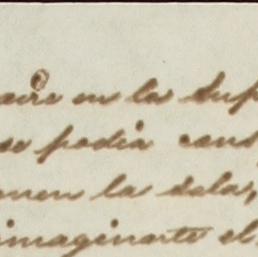 en la Sup
se podia cons
onen la sala,
imaginarte el